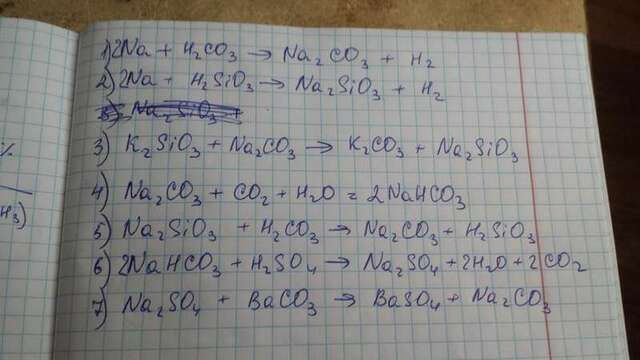 1) 2Na + H₂CO₃ → Na₂CO₃ + H₂
2) 2Na + H₂SiO₃ → Na₂SiO₃ + H₂
3) Na₂SiO₃ +
3) K₂SiO₃ + Na₂CO₃ → K₂CO₃ + Na₂SiO₃
%
4) Na₂CO₃ + CO₂ + H₂O = 2NaHCO₃
H₃)
5) Na₂SiO₃ + H₂CO₃ → Na₂CO₃ + H₂SiO₃
6) 2NaHCO₃ + H₂SO₄ → Na₂SO₄ + 2H₂O + 2CO₂
7) Na₂SO₄ + BaCO₃ → BaSO₄ + Na₂CO₃